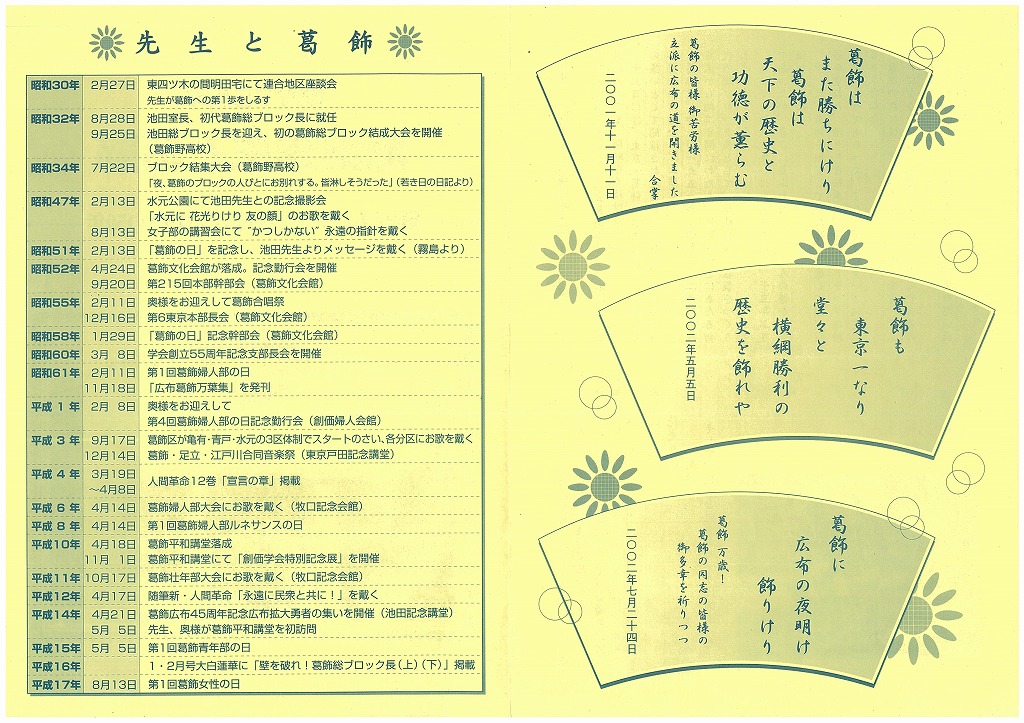 先生と葛飾
昭和30年 2月27日 東四ツ木の間明田宅にて連合地区座談会
先生が葛飾への第1歩をしるす
昭和32年 8月28日 池田室長、初代葛飾総ブロック長に就任
9月25日 池田総ブロック長を迎え、初の葛飾総ブロック結成大会を開催
（葛飾野高校）
昭和34年 7月22日 ブロック結集大会（葛飾野高校）
「夜、葛飾のブロックの人びとにお別れする。皆淋しそうだった」（若き日の日記より）
昭和47年 2月13日 水元公園にて池田先生との記念撮影会
「水元に 花光りけり 友の顔」のお歌を戴く
8月13日 女子部の講習会にて“かつしかない”永遠の指針を戴く
昭和51年 2月13日 「葛飾の日」を記念し、池田先生よりメッセージを戴く（霧島より）
昭和52年 4月24日 葛飾文化会館が落成。記念勤行会を開催
9月20日 第215回本部幹部会（葛飾文化会館）
昭和55年 2月11日 奥様をお迎えして葛飾合唱祭
12月16日 第6東京本部長会（葛飾文化会館）
昭和58年 1月29日 「葛飾の日」記念幹部会（葛飾文化会館）
昭和60年 3月 8日 学会創立55周年記念支部長会を開催
昭和61年 2月11日 第1回葛飾婦人部の日
11月18日 「広布葛飾万葉集」を発刊
平成 1 年 2月 8日 奥様をお迎えして
第4回葛飾婦人部の日記念勤行会（創価婦人会館）
平成 3 年 9月17日 葛飾区が亀有・青戸・水元の3区体制でスタートのさい、各分区にお歌を戴く
12月14日 葛飾・足立・江戸川合同音楽祭（東京戸田記念講堂）
平成 4 年 3月19日
～4月8日 人間革命12巻「宣言の章」掲載
平成 6 年 4月14日 葛飾婦人部大会にお歌を戴く（牧口記念会館）
平成 8 年 4月14日 第1回葛飾婦人部ルネサンスの日
平成10年 4月18日 葛飾平和講堂落成
11月 1日 葛飾平和講堂にて「創価学会特別記念展」を開催
平成11年 10月17日 葛飾壮年部大会にお歌を戴く（牧口記念会館）
平成12年 4月17日 随筆新・人間革命「永遠に民衆と共に！」を戴く
平成14年 4月21日 葛飾広布45周年記念広布拡大勇者の集いを開催（池田記念講堂）
5月 5日 先生、奥様が葛飾平和講堂を初訪問
平成15年 5月 5日 第1回葛飾青年部の日
平成16年 1・2月号大白蓮華に「壁を破れ！葛飾総ブロック長（上）（下）」掲載
平成17年 8月13日 第1回葛飾女性の日
葛飾は
また勝ちにけり
葛飾は
天下の歴史と
功徳が薫らむ
葛飾の皆様 御苦労様
立派に広布の道を開きました
合掌
二〇〇一年十一月十一日
葛飾も
東京一なり
堂々と
横綱勝利の
歴史を飾れや
二〇〇二年五月五日
葛飾に
広布の夜明け
飾りけり
葛飾 万歳！
葛飾の同志の皆様の
御多幸を祈りつつ
二〇〇二年七月二十四日